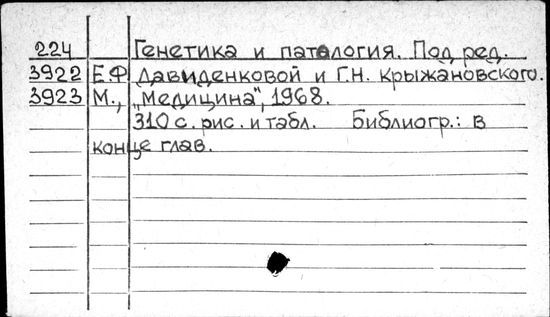 224 Генетика и патология. Под ред.
3922 Е.Ф. Давиденковой и Г.Н. Крыжановского.
3923 М., „Медицина", 1968.
310 с. рис. и табл. Библиогр.: в
конце глав.